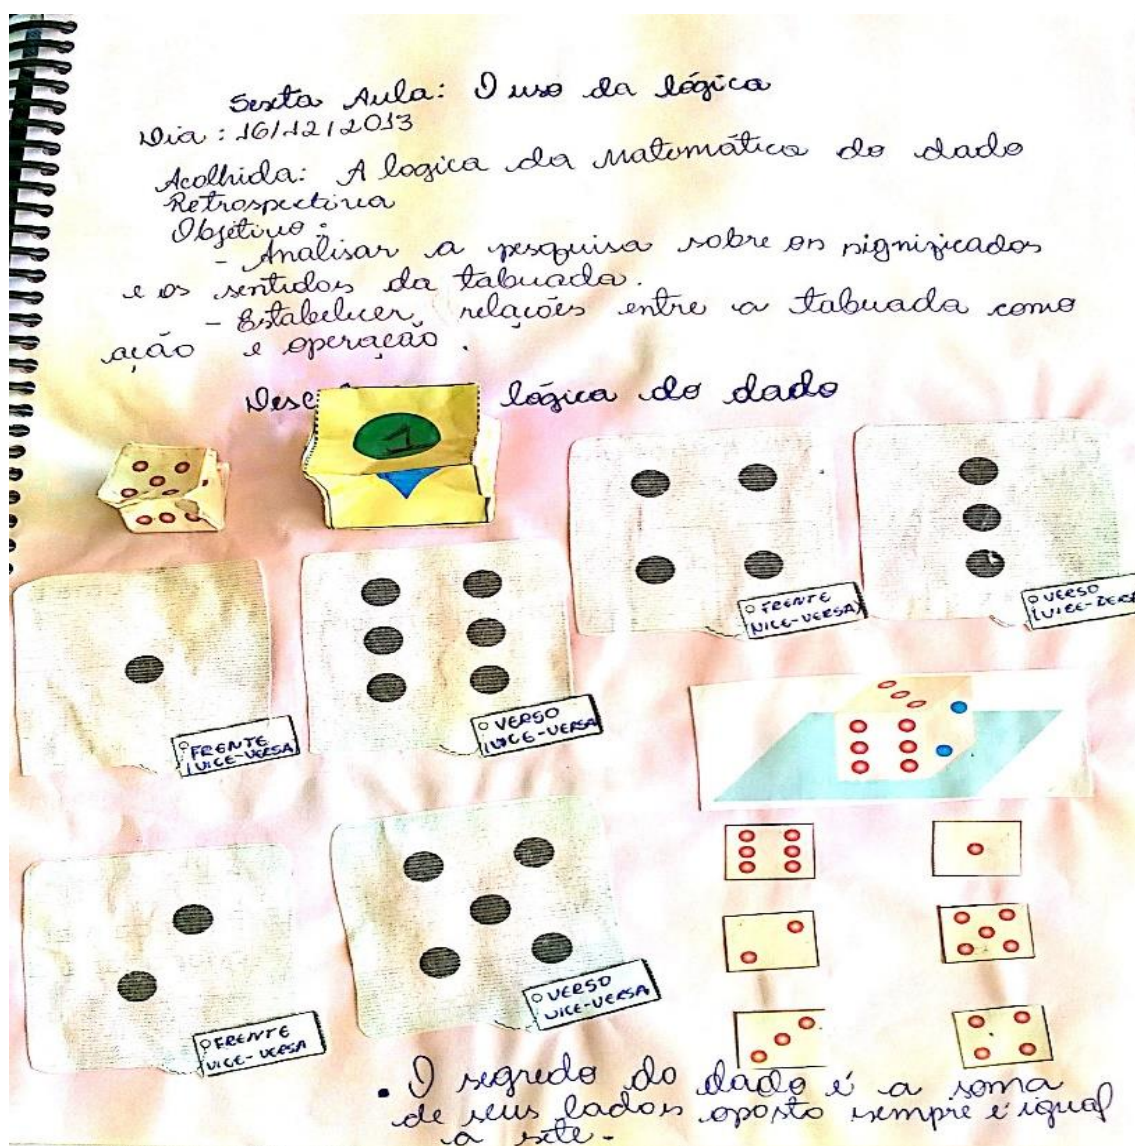 Sexta Aula: O uso da lógica
Dia: 16/12/2013
Acolhida: A logica da Matemática do dado
Retrospectiva
Objetivo:
- Analisar a pesquisa sobre os significados
e os sentidos da tabuada.
- Estabelecer, relações entre a tabuada como
ação e operação.
lógica do dado
1
O FRENTE
(VICE-VERSA)
O VERSO
(VICE-VERSA
O FRENTE
(VICE-VERSA)
O VERSO
(VICE-VERSA)
O FRENTE
VICE-VERSA
O VERSO
VICE-VERSA
• O segredo do dado é a soma
de seus lados oposto sempre é igual
a sete.